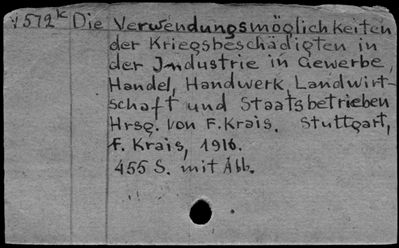 V 572 k Die Verwendungsmöglichkeiten
der Kriegsbeschädigten in
der Industrie in Gewerbe,
Handel, Handwerk, Landwirt-
schaft und Staatsbetrieben
Hrsg. von F. Krais. Stuttgart,
F. Krais, 1916.
455 S. mit Abb.